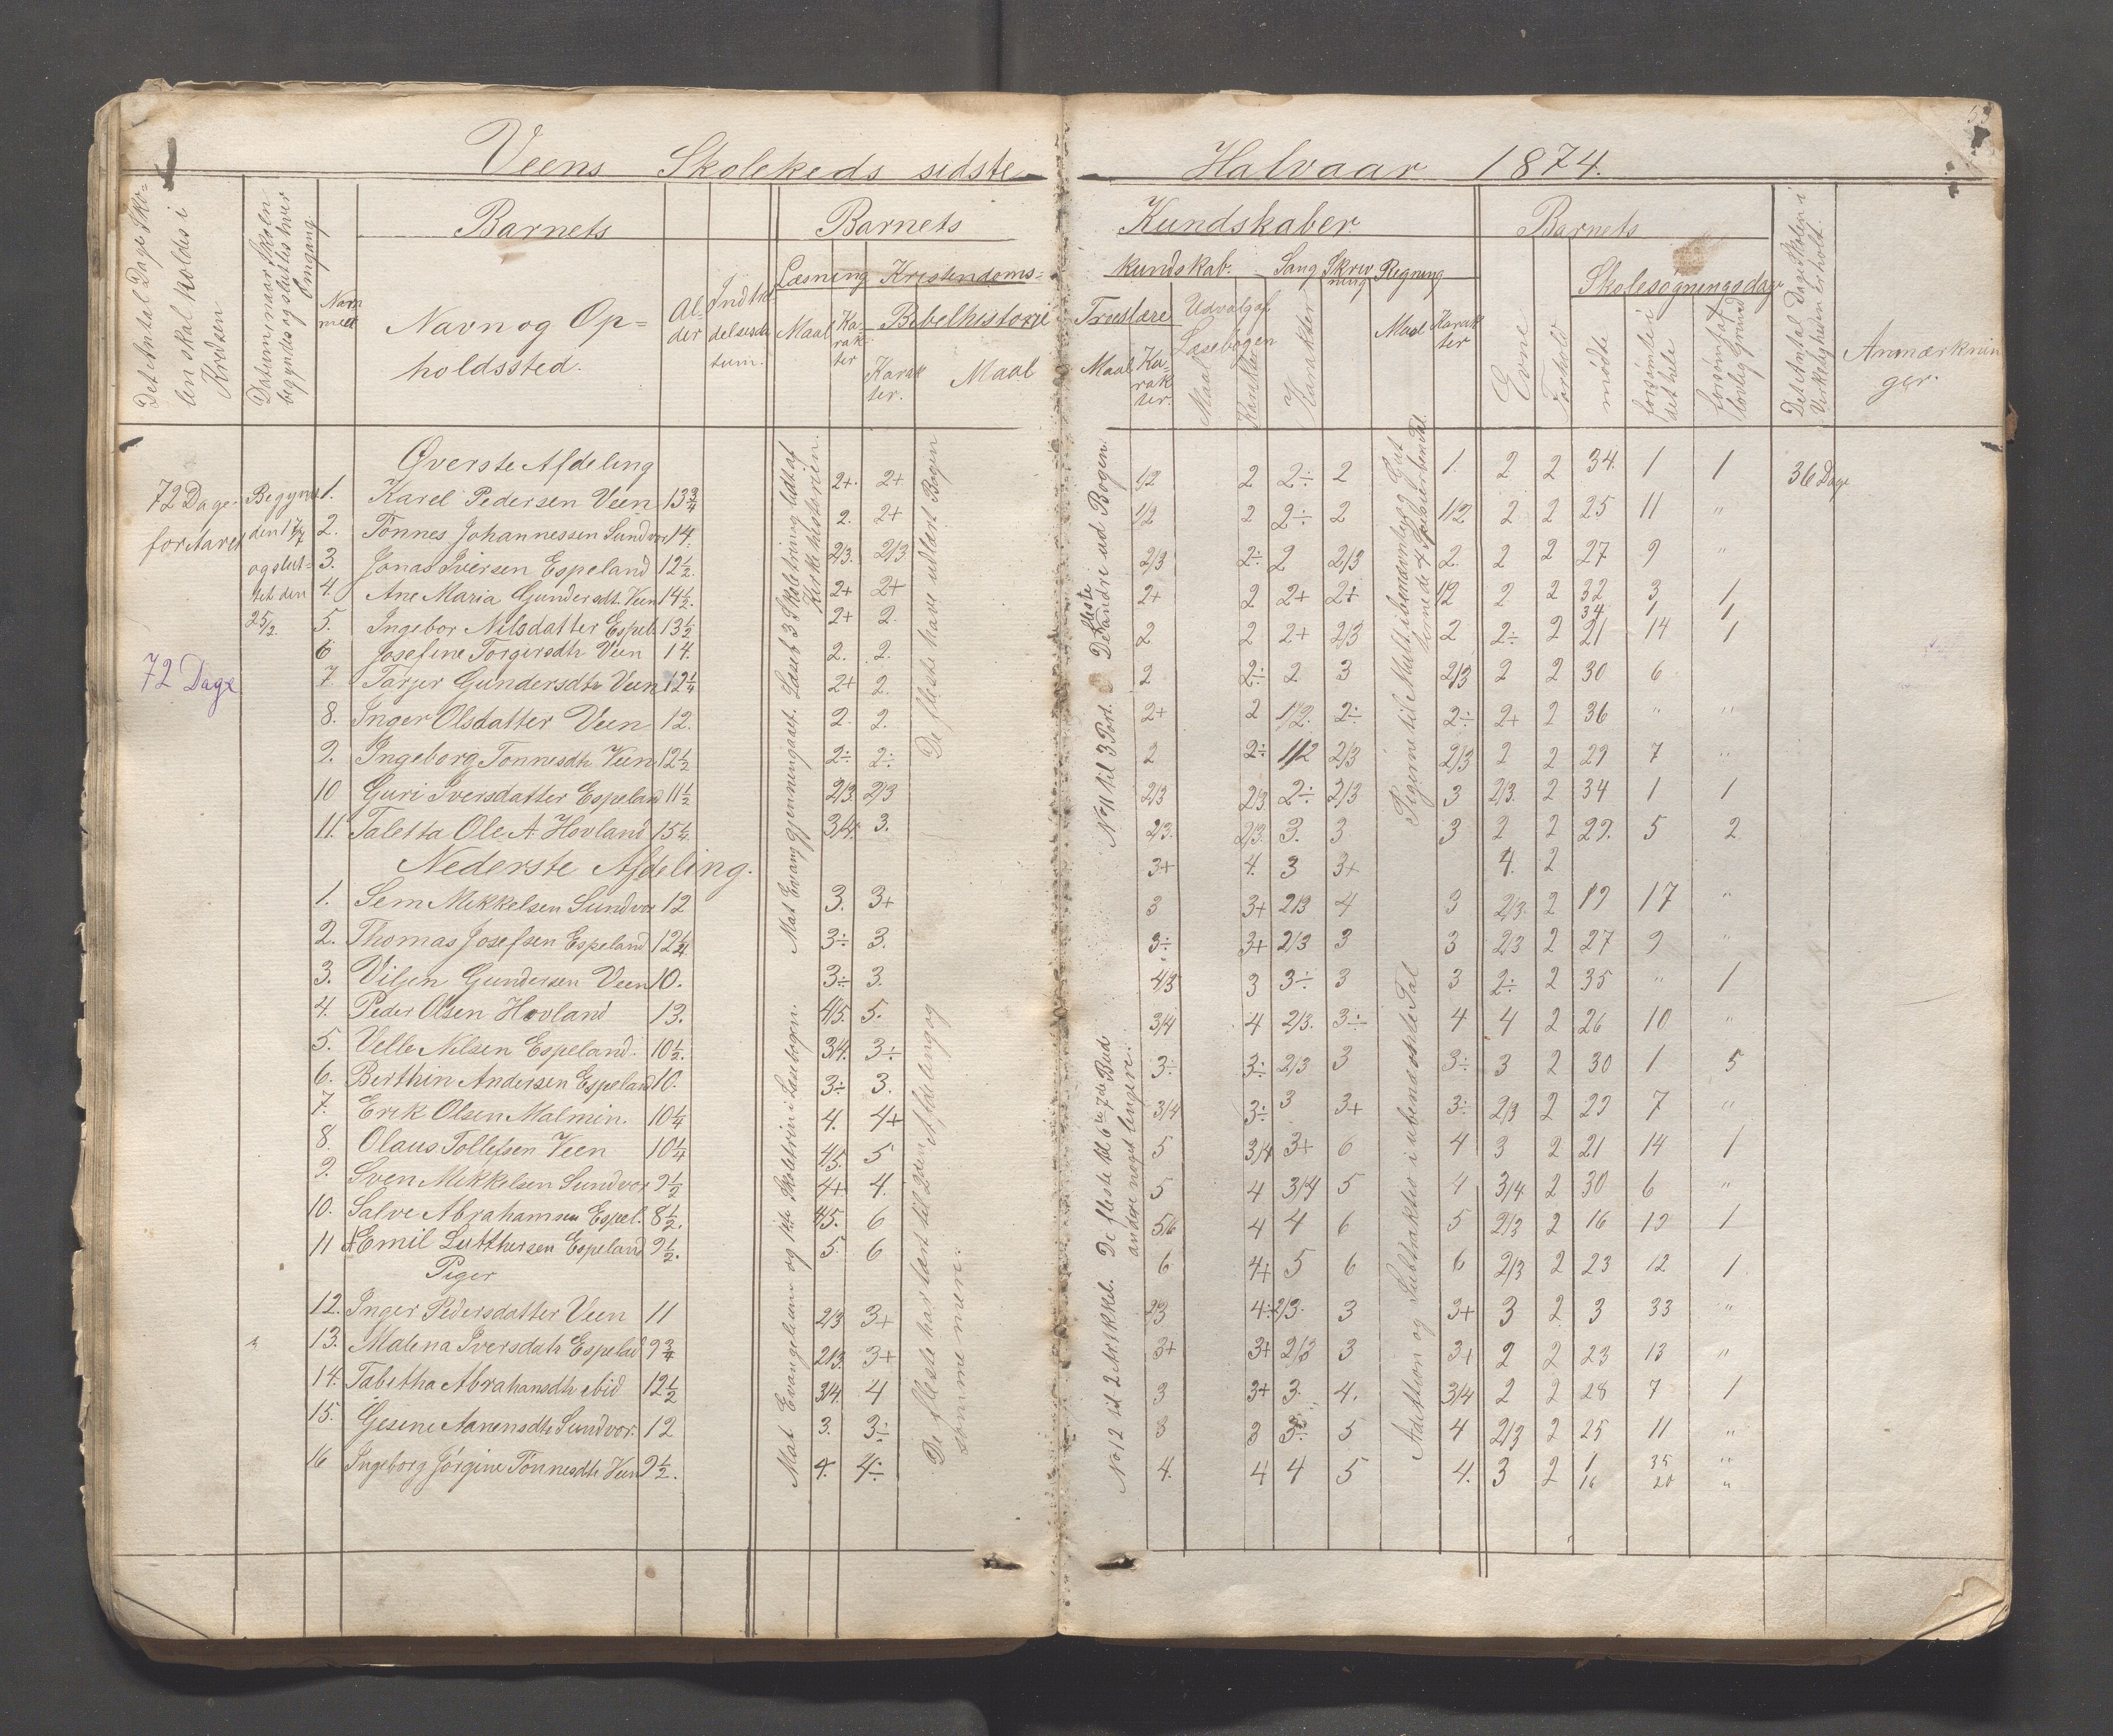 Veens Skolekeds sidste Halvaar 1874.
Det Antal Dage Sko-
len skal holdes i
Kredsen
Datum naar Skolen
begyndes og sluttes hver
Omgang.
Barnets
Navn og Op-
holdssted.
Al
der
Indtræ
delsesda
tum.
Barnets Kundskaber
Læsning
Maal
Ka-
rak-
ter
Kristendoms-
kundskab.
Bibelhistorie
Karak
ter.
Maal
Troeslære
Maal
Ka-
rak
ter.
Udvalg af
Læsebogen
Maal
Karakter
Sang
Karakter
Skriv
ning
Regning
Maal
Karak
ter
Barnets
Evne
Forhold
Skolesøgningsdage
mødte
forsømte i
det hele
forsømt af
lovlig Grund
Det Antal Dage Skolen i
Virkeligheden er holdt.
Anmærknin
ger.
72 Dage
for Aaret
Begyndt
den 17/7
og slut-
tet den
25/2.
72 Dage
Øverste Afdeling
1. Karel Pedersen Veen 13 3/4 2+ 2+ 1/2 2 2÷ 2 1. 2 2 34. 1 1 36 Dage
2. Tønnes Johannessen Sundvor 14. 2. 2+ 1/2 2 2÷ 2 1/2 2 2 25 11 "
3. Jonas Iversen Espeland 12 1/2. 2/3. 2/3 2/3 2÷ 2 2/3 2. 2 2 27 9 "
4. Ane Maria Gundersdt. Veen 14 1/2. 2+ 2+ 2+ 2 2+ 2+ 1/2 2 2 32 3 1
34. 1 1
5. Ingebor Nilsdatter Espel. 13 1/2 2+ 2. 2 2 2+ 2/3 2 2÷ 2 21 14 1
6 Josefine Torgersdtr Veen 14. 2. 2. 2 2÷ 2 3 2/3 2 2 30 6
7 Tarjer Gundersdtr Veen 12 1/4 2+ 2. 2+ 2 1/2. 2÷ 2÷ 2+ 2 36 " "
8. Inger Olsdatter Veen 12. 2. 2. 2 2÷ 1/2 2/3 2/3 2 2 29 7 "
9. Ingeborg Tønnesdtr. Veen 12 1/2 2÷ 2÷ 2/3 2/3 2÷ 2/3 3 2/3. 2 34 1 1
10 Guri Iversdatter Espeland 11 1/2 2/3. 2/3 2/3. 2/3. 3. 3 3 2 2 29. 5 2
11. Taletta Ole A. Hovland 15 1/4. 3/4. 3. 3+ 4. 3 3+ 4. 2
Nederste Afdeling.
1. Sem Mikkelsen Sundvor 12 3. 3+ 3 3+ 2/3 4 3 2/3. 2 19 17 "
2. Thomas Josefsen Espeland 12 1/4. 3÷ 3. 3÷ 3+ 2/3 3 3 2/3 2 27 9 "
3. Viljen Gundersen Veen 10. 3÷ 3. 4/3 3 3÷ 3 3 2÷ 2 35 " 1
4. Peder Olsen Hovland 13. 4/5. 5. 3/4 4 2/3. 3÷ 4 4 2 26 10 "
5. Velle Nilsen Espeland. 10 1/2. 3/4. 3÷ 3÷ 3÷ 2/3 3 3÷ 3 2 30 1 5
6. Berthin Andersen Espeland 10. 3÷ 3. 3/4 3÷ 3 3+ 3÷ 2/3 2 29 7 "
7. Erik Olsen Malmin. 10 1/4 4. 4+ 5 3/4 3+ 6 4 3 2 21 14 1
8. Olaus Tollefsen Veen 10 1/4 4/5. 5 5 4 3/4 5 4 3/4 2 30 6 "
9. Sven Mikkelsen Sundvor 9 1/2 4+ 4. 5/6 4 4 6 5 2/3 2 16 19 1
10. Salve Abrahamsen Espel. 8 1/2. 4/5. 6 6 4+ 5 6 6 2/3 2 23 12 1
11 Emil Lutthersen Espeland 9 1/2. 5. 6
Piger
12. Inger Pedersdatter Veen 11 2/3 3+ 2/3 4÷ 2/3. 3 3+ 3 2 3 33 "
13. Malena Iversdatr Espelad 9 3/4 2/3. 3+ 3+ 3+ 2/3 3 3+ 2 2 23 13 "
14. Tabitha Abrahamsdtr ibid 12 1/2 3/4. 4 3 3+ 3. 4. 3/4 2 2 28 7 1
15. Gesine Aanensdtr Sundvor. 12 3. 3÷ 3 3 3÷ 5 4 2/3 2 25 11 "
16 Ingeborg Jørgine Tønnesdtr Veen 9 1/2. 4. 4÷ 4. 4 4 5 4. 3 2 1 35 "
16 20 "
Mat Evang gjennemgaaet. Læsef 3 Skoletrin og lidt af
Kirkehistorien.
De fleste have udlært Bogen
No 11 til 3 Part. De fleste Andre ud Bogen.
Mat Evangelium og 1ste Skoletrin i Læsebogen.
De fleste har lært til 2den Afdeling og
somme mere.
No 12 til 2 Artikkel. De fleste til 6te 7de Bud
andre noget lengere.
Addition og Subtraktion i ubenævnte Tal